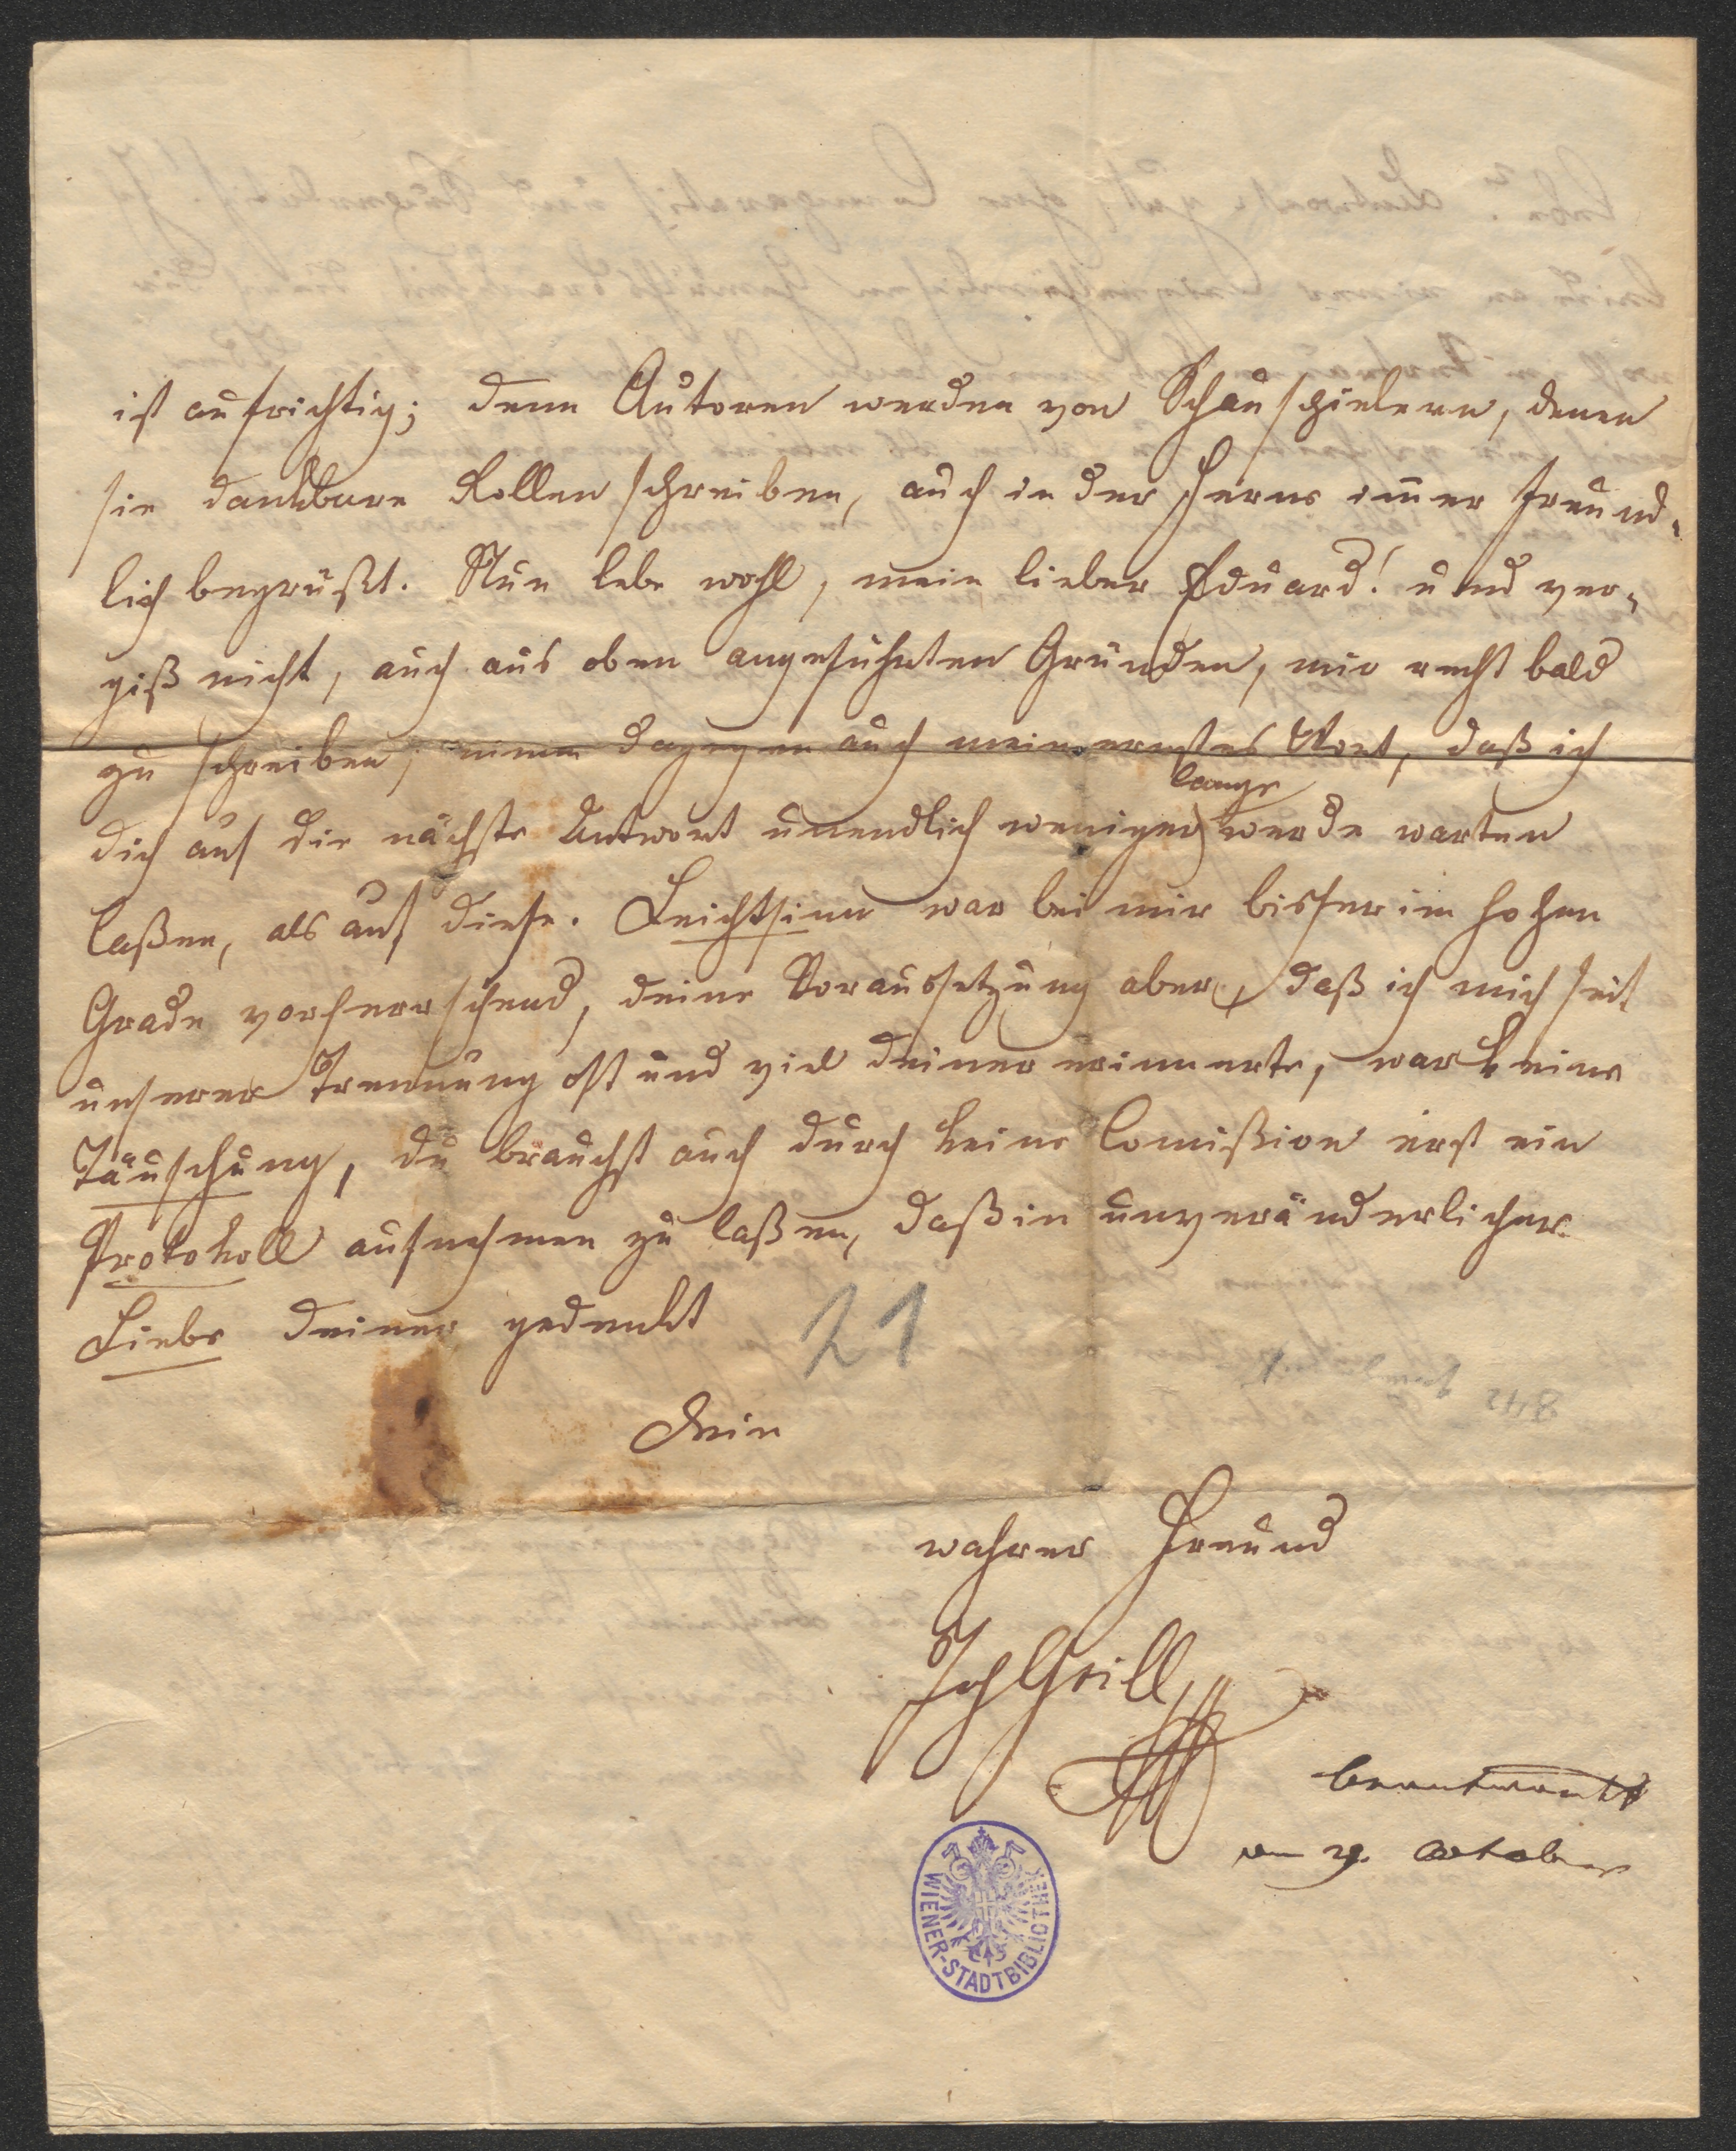 ist aufrichtig; denn Autoren werden von Schauspielern, denen
sie dankbare Rollen schreiben, auch in der Ferne im̅er freund-
lich begrüßt. Nun lebe wohl, mein lieber Eduard! und ver-
giß nicht, auch aus oben angeführten Gründen, mir recht bald
zu schreiben; nimm dagegen auch mein ernstes Wort, daß ich
lange
dich auf die nächste Antwort unendlich weniger werde warten
laßen, als auf diese. Leichtsinn war bei mir bisher im hohen
Grade vorherrschend, deine Voraussetzung aber, daß ich mich seit
unserer Trennung oft und viel deiner erinnerte, war keine
Täuschung, du brauchst auch durch keine Comißion erst ein
Protokoll aufnehmen zu laßen, daß in unveränderlicher
Liebe deiner gedenkt
21
Dein
wahrer Freund
Joh Grill
beantwortet
am 29. October
WIENER-STADTBIBLIOTHEK